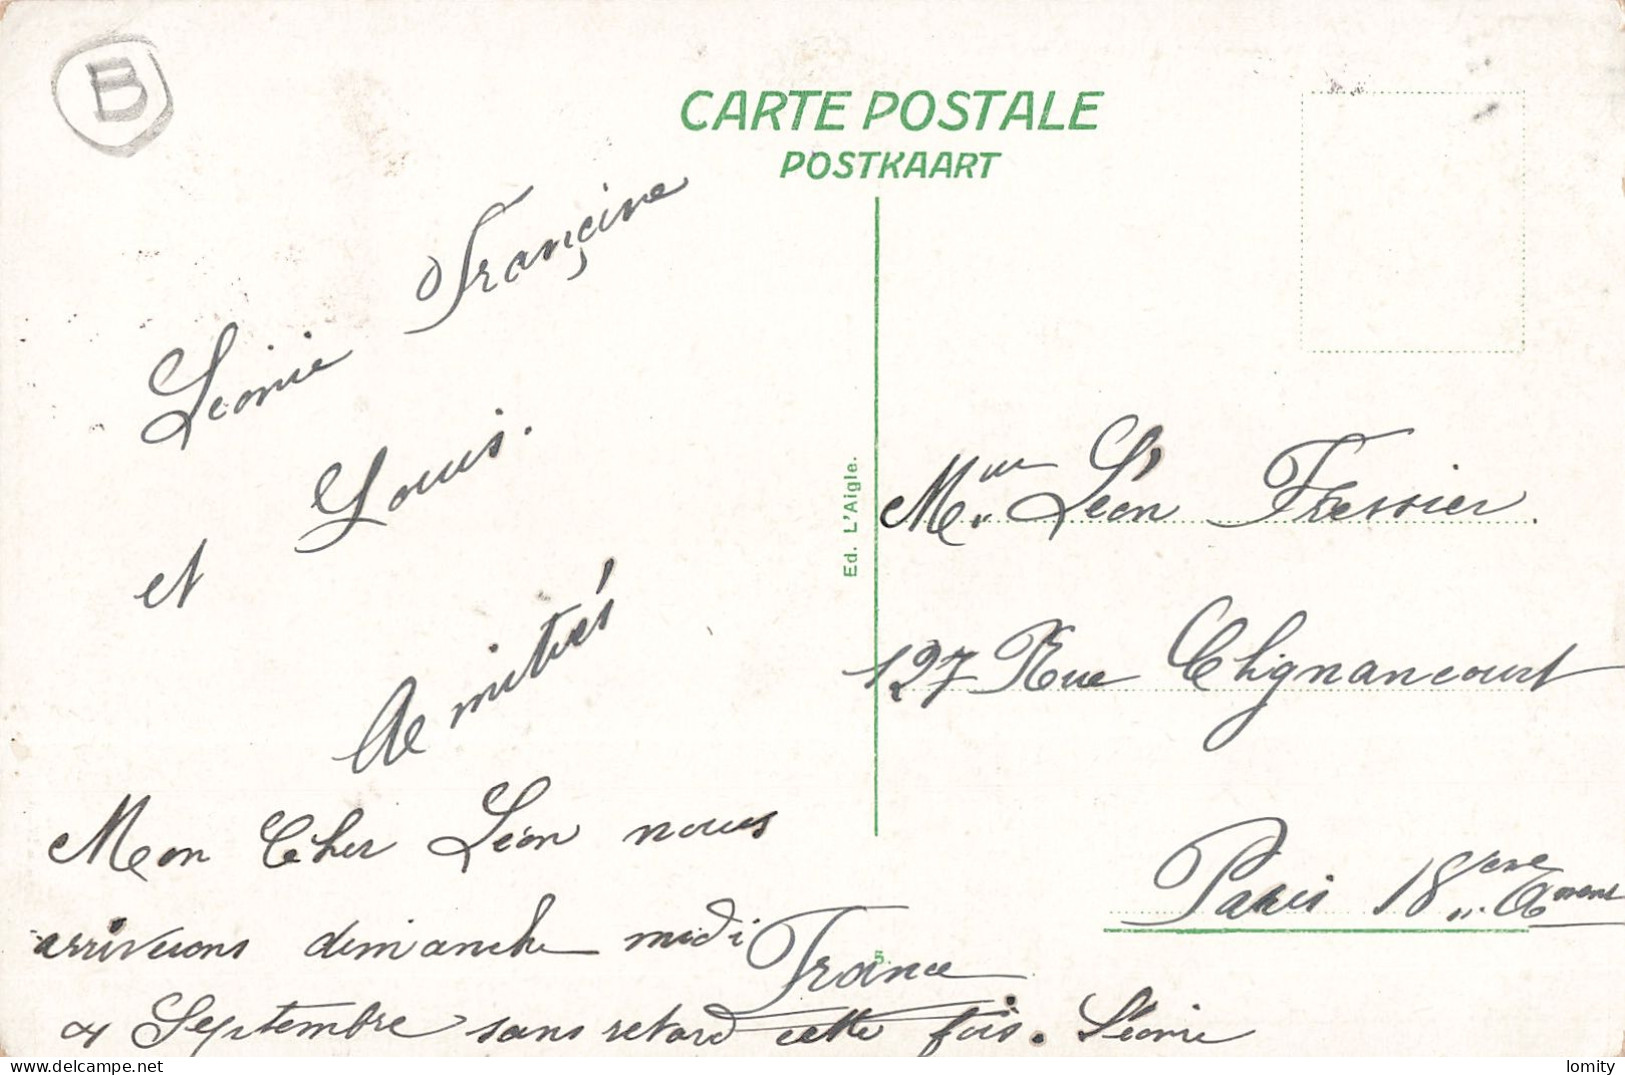 B
CARTE POSTALE
POSTKAART
Léonie Françine
et Louis.
Amitiés
Mon Cher Léon nous
arriverons dimanche midi
4 Septembre sans retard cette fois. Léonie
Ed. L'Aigle.
5.
Mme Léon Fressier.
127 Rue Clignancourt
Paris 18ème
France
lomity